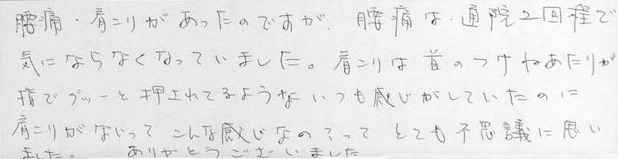 腰痛・肩こりがあったのですが、腰痛は、通院2回程で
気にならなくなっていました。肩こりは首のつけねあたりが
指でグッーと押されてるようないつも感じがしていたのに
肩こりがないって こんな感じなの?って とても不思議に思い
ました。 ありがとうございました